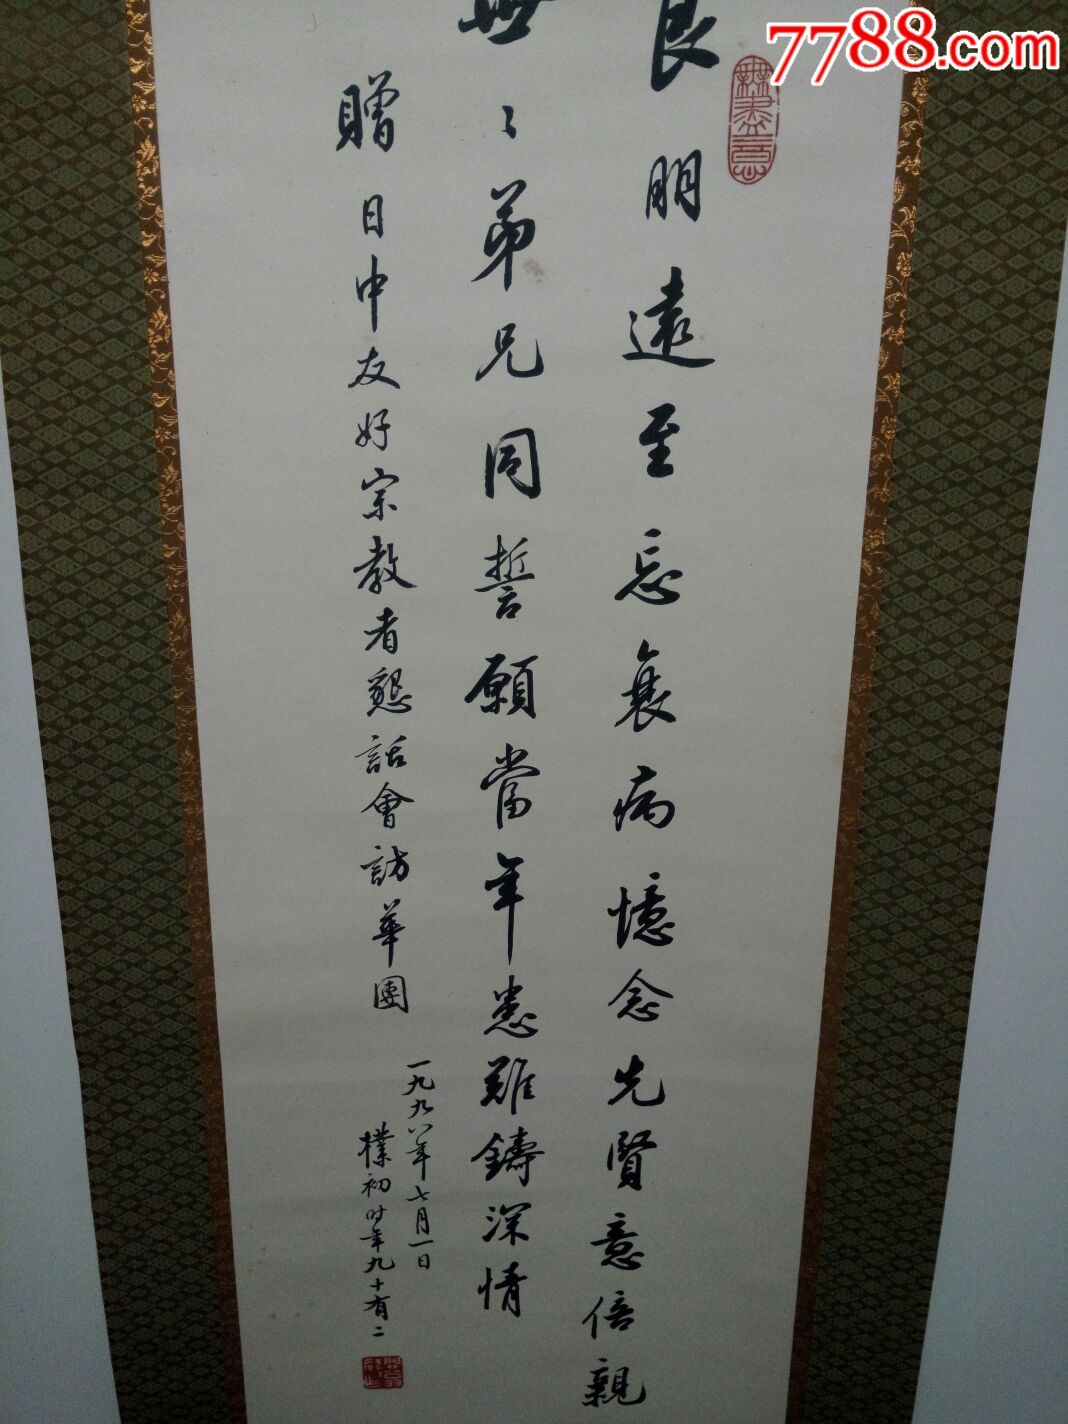 7788.com
良朋遠至忘衰病憶念先賢意倍親
無〻弟兄同誓願當年患難鑄深情
贈日中友好宗教者懇話會訪華團
一九九八年七月一日
樸初时年九十有二
無盡意